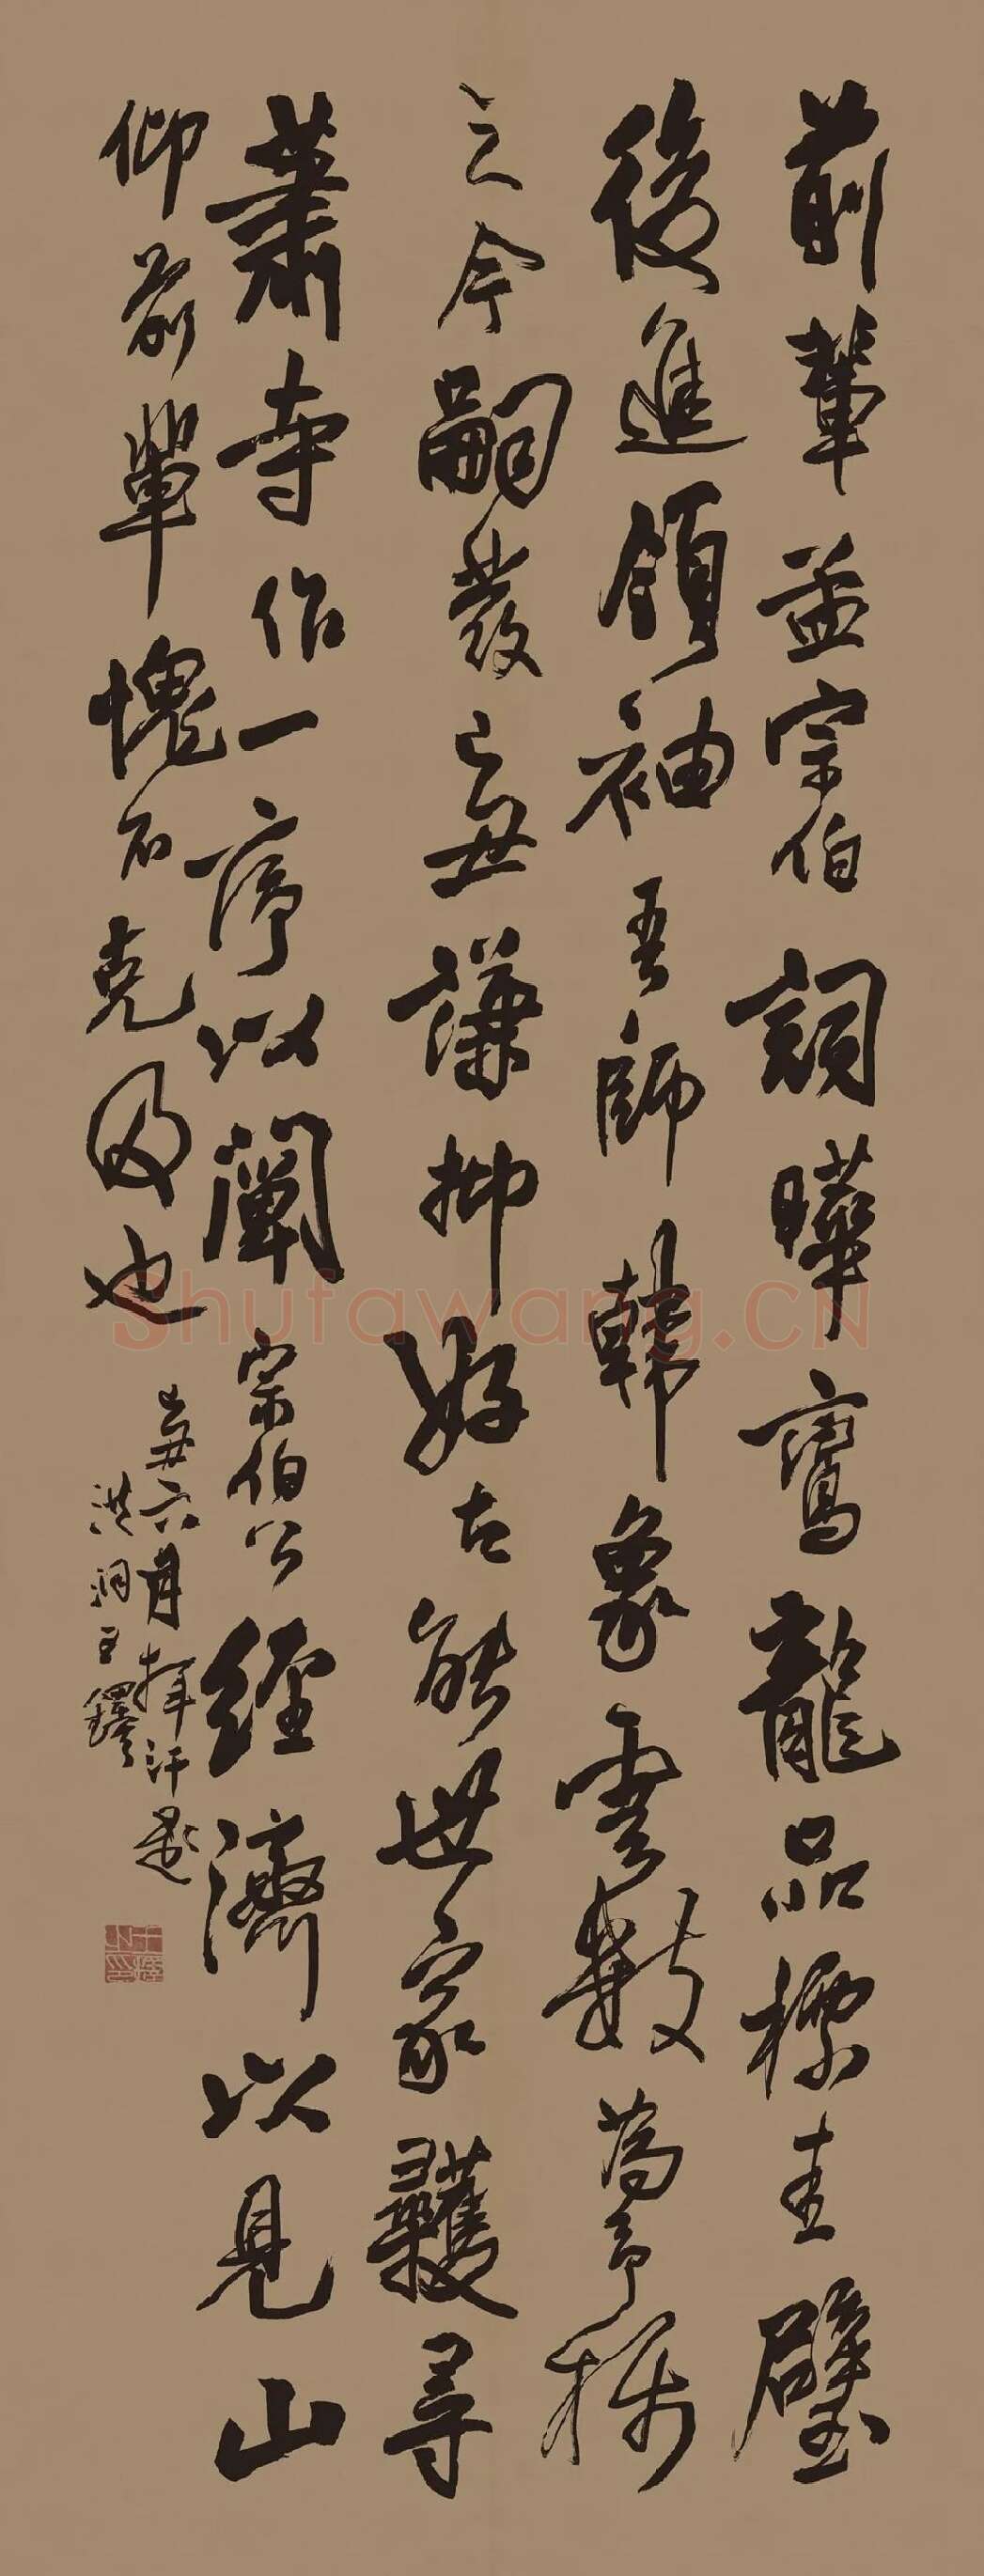 前輩孟宗伯詞曄鸞龍品標圭璧
後進領袖吾師韓象雲數為予稱
之今嗣發已丑謙抑好古能世家獲尋
蕭寺作一序以闡宗伯公經濟以見山
仰前輩愧不克及也
丑六月揮汗題
洪洞王鐸
Shufawang.CN